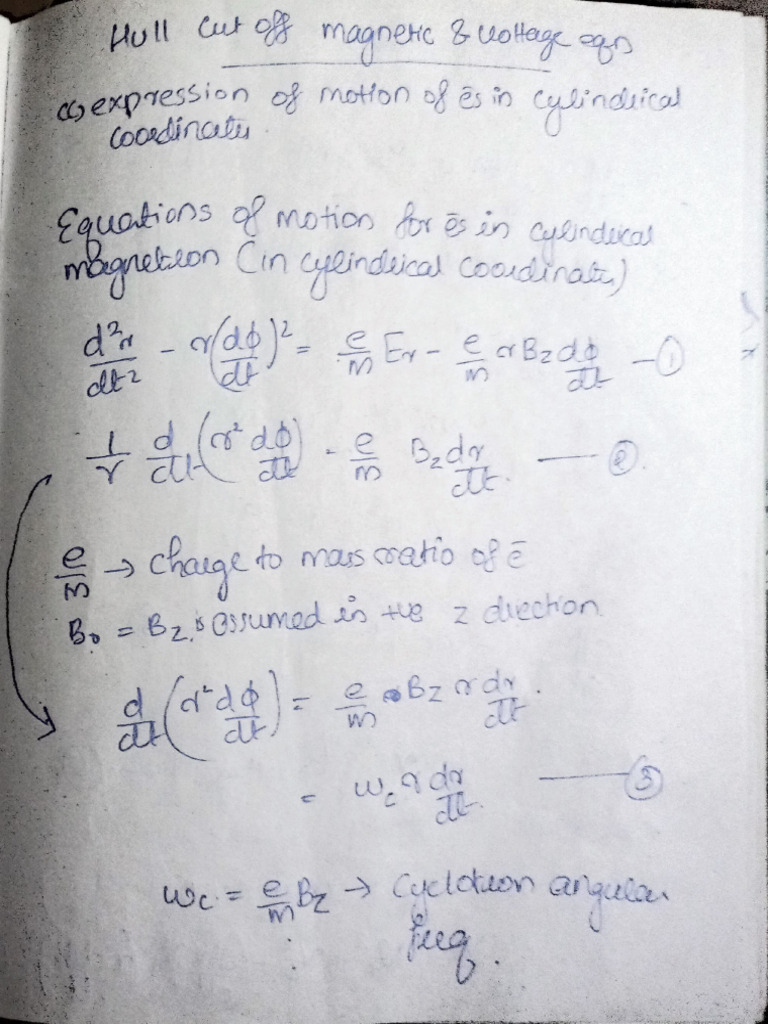 Hull cut off magnetic & voltage eqn
(or) expression of motion of ēs in cylindrical
coordinates.
Equations of motion for ēs in cylindrical
magnetron (in cylindrical coordinates)
d²r/dt² - r(dφ/dt)² = e/m Er - e/m r Bz dφ/dt —①
1/r d/dt (r² dφ/dt) = e/m Bz dr/dt. —②.
e/m → charge to mass ratio of ē
B₀ = Bz is assumed in +ve z direction
d/dt (r² dφ/dt) = e/m Bz r dr/dt.
= ωc r dr/dt. —③
ωc = e/m Bz → cyclotron angular
freq.